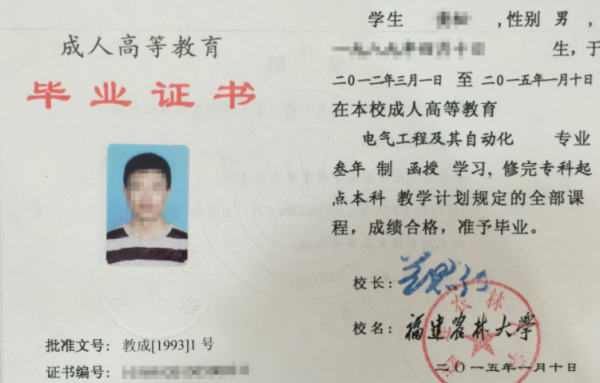 成人高等教育
毕业证书
批准文号：教成[1993]1 号
证书编号：
学生 ,性别 男 ,
生，于
二〇一二年三月一日 至 二〇一五年一月十日
在本校成人高等教育
电气工程及其自动化 专业
叁年 制 函授 学习，修完专科起
点本科 教学计划规定的全部课
程，成绩合格，准予毕业。
校长：
校名：福建农林大学
二〇一五年一月十日